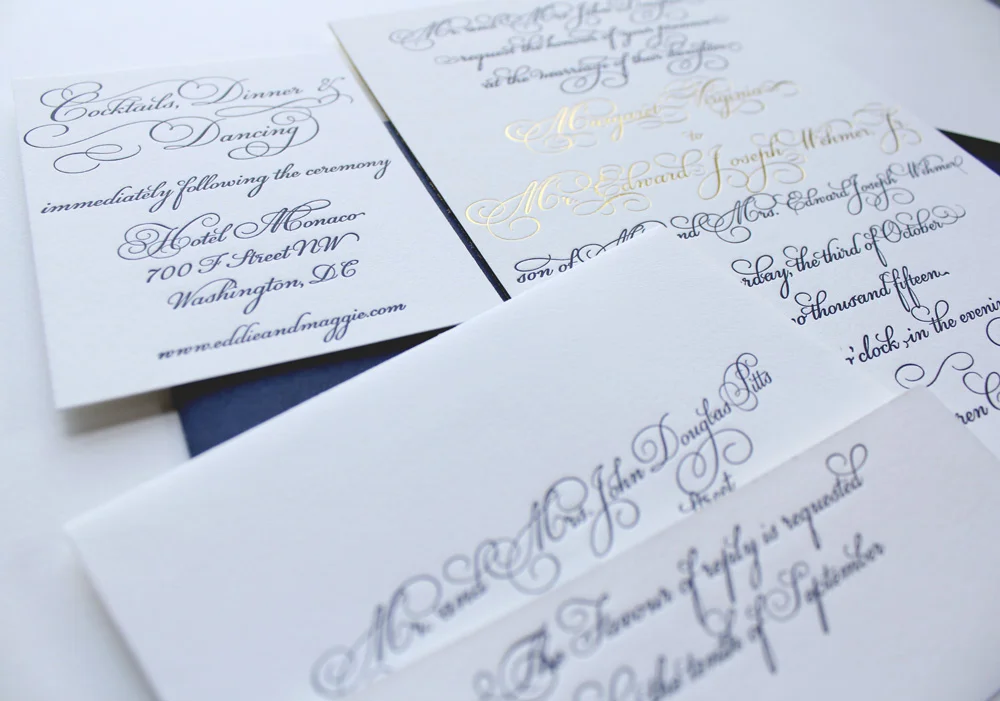 Cocktails, Dinner &
Dancing
immediately following the ceremony
Hotel Monaco
700 F Street NW
Washington, DC
www.eddieandmaggie.com
Mr. and Mrs. John Douglas
request the honour of your presence
at the marriage of their daughter
Margaret Virginia
to
Mr. Edward Joseph Wehmer, Jr.
son of Mr. and Mrs. Edward Joseph Wehmer
rday, the third of October
o thousand fifteen
o'clock in the evenin
ren
Mr. and Mrs. John Douglas Pitts
Street
The Favour of reply is requested
the tenth of September